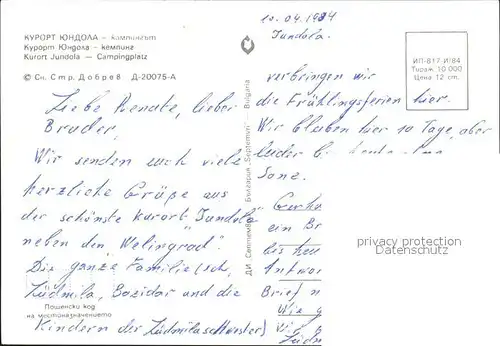 КУРОРТ ЮНДОЛА — къмпингът
Курорт Юндола — кемпинг
Kurort Jundola — Campingplatz
© Сн. Стр. Добрев Д-20075-А
Liebe Renate, lieber
Bruder,
Wir senden euch viele
herzliche Grüße aus
der schönste kurort "Jundola"
neben den "Welingrad".
Die ganze Familie (ich,
Lüdmila, Bozidar und die
Kindern der Lüdmilaschwester)
Пощенски код
на местоназначението
ДИ „Септември“ България „Septemvri“ — Bulgaria
10.04.1984
Jundola.
verbringen wir
die Frühlingsferien hier.
Wir bleiben hier 10 Tage, aber
leider
Sone.
ein Br
bis heu
Antwor
Brief n
Wie g
Lüdm
ИП-817-И/84
Тираж 10 000
Цена 12 ст.
privacy protection
Datenschutz